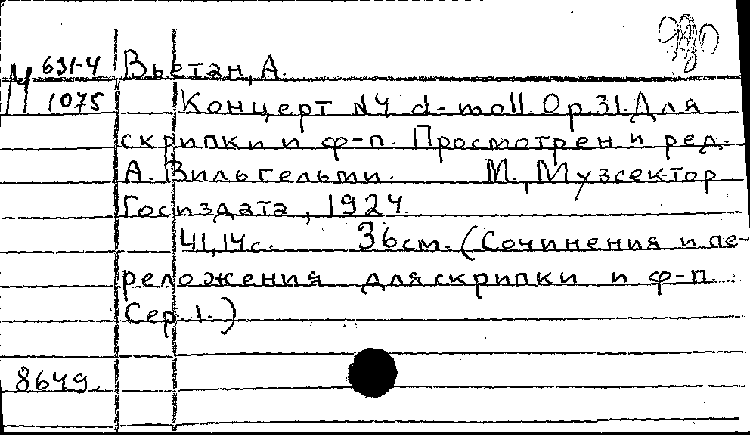 М 631-4 Вьетан, А.
1075 Концерт №4 d-moll. Op.31. Для
скрипки и ф-п. Просмотрен и ред.
А. Вильгельми. М., Музсектор
Госиздата, 1924
41, 14с. 36см. (Сочинения и пе-
реложения для скрипки и ф-п.
Сер. 1.)
8649.